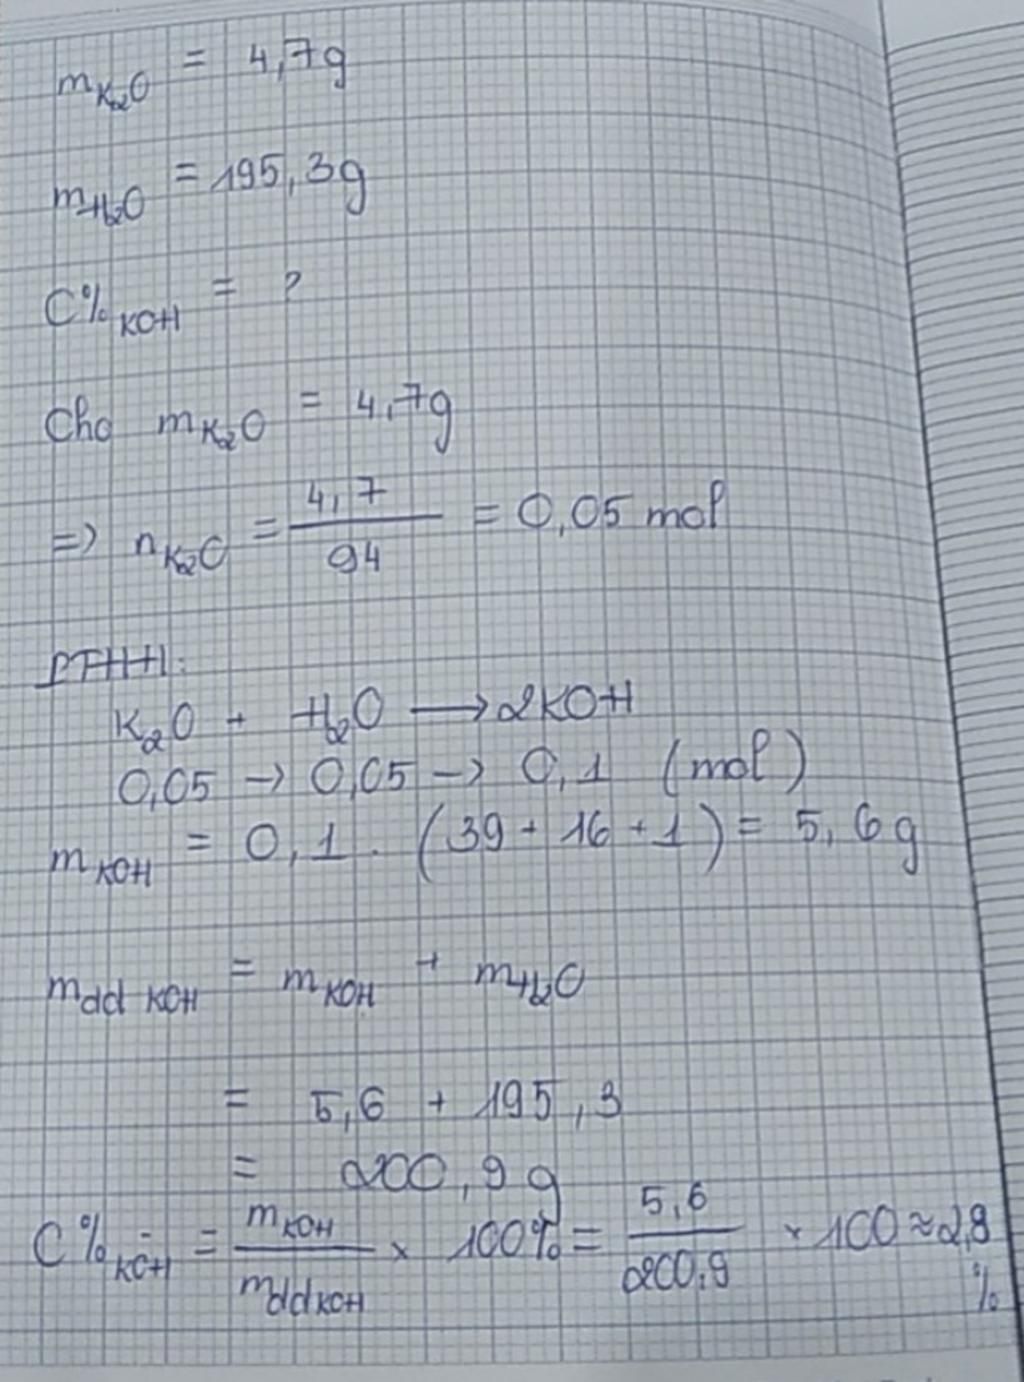 mK₂O = 4,7g
mH₂O = 195,3g
C%KOH = ?
Cho mK₂O = 4,7g
=> nK₂O = 4,7/94 = 0,05 mol
PTHH:
K₂O + H₂O → 2KOH
0,05 → 0,05 → 0,1 (mol)
mKOH = 0,1 . (39 + 16 + 1) = 5,6g
mdd KOH = mKOH + mH₂O
= 5,6 + 195,3
= 200,9 g
C%KOH = mKOH/mddKOH × 100% = 5,6/200,9 × 100 ≈ 2,8%